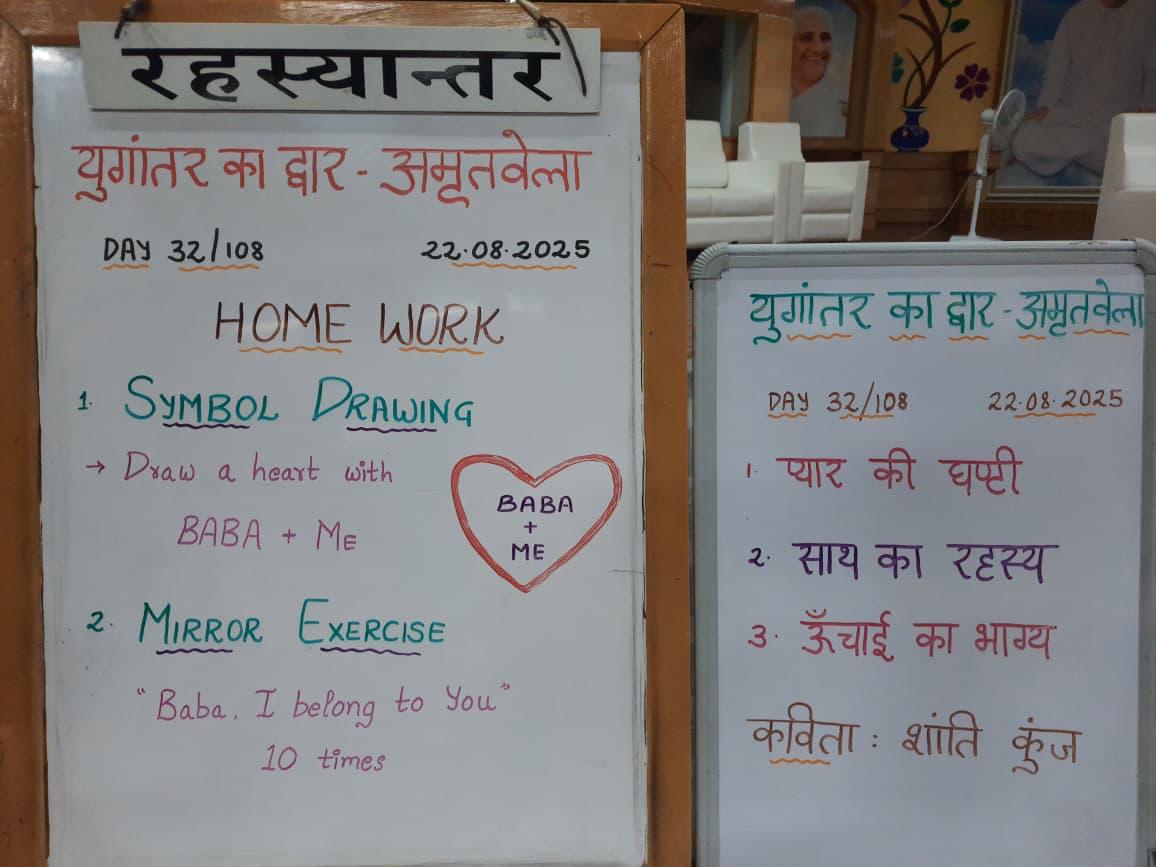 रहस्यान्तर
युगांतर का द्वार - अमृतवेला
DAY 32/108 22.08.2025
HOME WORK
1. SYMBOL DRAWING
→ Draw a heart with
BABA + ME
BABA
+
ME
2. MIRROR EXERCISE
"Baba, I belong to You"
10 times
युगांतर का द्वार - अमृतवेला
DAY 32/108 22.08.2025
1. प्यार की घण्टी
2. साथ का रहस्य
3. ऊँचाई का भाग्य
कविता : शांति कुंज